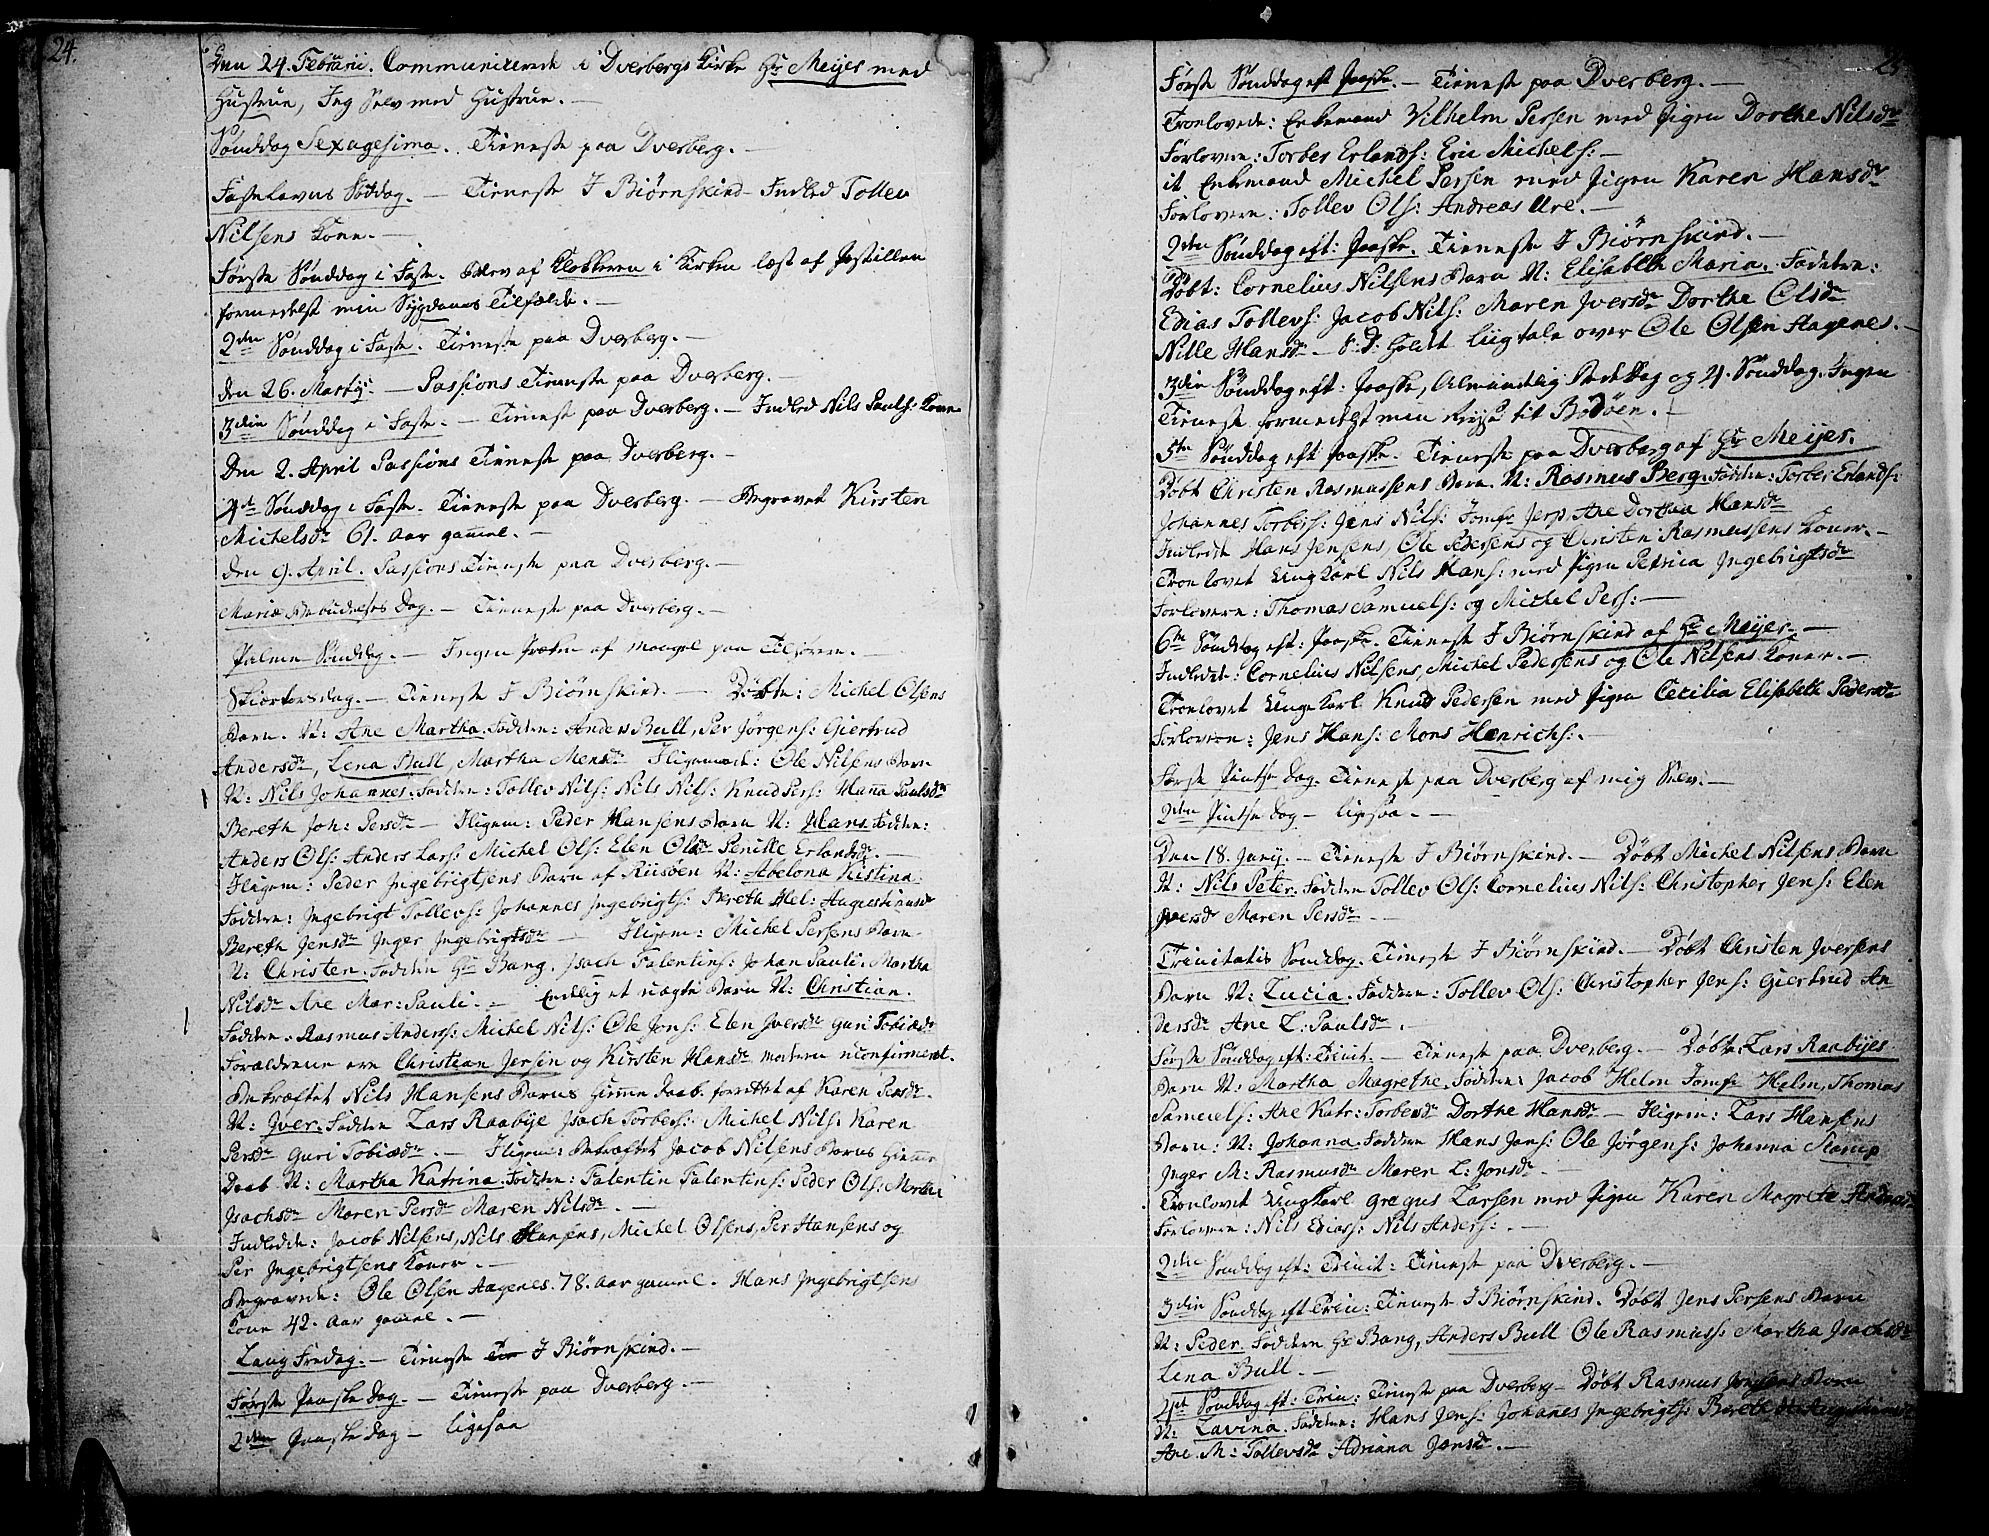 24.
Den 24. Februarii. Communicerede i Dverbergs Kirke Hr Meyer med
Hustrue, Jeg Selv med Hustrue. –
Sønddag Sexagesima. Tieneste paa Dverberg. –
Fastelavns Sønddag. – Tieneste I Biørnskind Indled Tollev
Nilsens Kone. –
Første Sønddag i Faste. Blev af Klokkeren i Kirken læst af Postillen
formedelst min Sygdoms Tilfælde. –
2den Sønddag i Faste. Tieneste paa Dverberg. –
Den 26. Martij. – Passions Tieneste paa Dverberg. –
3die Sønddag i Faste. – Tieneste paa Dverberg. – Indled Nils Pauls: Kone
Den 2. April Passions Tieneste paa Dverberg. –
4de Sønddag i Faste. Tieneste paa Dverberg. – Begravet Kirsten
Michelsdr 61. Aar gamel. –
Den 9. April. Passions Tieneste paa Dverberg. –
Mariæ Bebudelses Dag. – Tieneste paa Dverberg. –
Palme Sønddag. – Ingen Præken af mangel paa Tilhørere. –
Skiærtorsdag. – Tieneste I Biørnskind. – Døbte: Michel Olsens
Barn. N: Ane Martha. Faddere: Anders Bull, Per Jørgens: Giertrud
Andersdr, Lena Bull, Martha Mensdr Iligemaade: Ole Nilsens Barn
N: Nils Johannes. Faddere: Tollev Nils: Nils Nils: Knud Pers: Hanna Paulsdr
Bereth Joh: Persdr – Iligem: Peder Hansens Barn N: Hans. Faddere:
Anders Ols: Anders Lars: Michel Ols: Elen Olsdr Pernille Erlandsdr. –
Iligem: Peder Ingebrigtsens Barn af Riisøen N: Abelona Kistina.
Faddere: Ingebrigt Tollevs: Johannes Ingebrigts: Bereth Hel: Augustinusdr
Bereth Jensdr Inger Ingebrigtsdr – Iligem: Michel Persens Barn
N: Christen. Faddere Hr Bang. Isach Falentins: Johan Pauli. Martha
Nilsdr Ane Mar: Pauli. – Endelig et uægte Barn N: Christian.
Faddere. Rasmus Anders: Michel Nils: Ole Jons: Elen Iversdr Guri Tobiædr
Forældrene ere Christian Jersin og Kirsten Hansdr moderen uconfirmeret.
Bekræftet Nils Hansens Barns Hieme Daab. forrettet af Karen Persdr.
N: Iver. Faddere Lars Raabye Isach Torbers: Michel Nils: Karen
Persdr Guri Tobiædr. – Iligem: Bekræftet Jacob Nilsens Barns Hieme
Daab N: Martha Katrina. Faddere: Falentin Falentins: Peder Ols: Martha
Isachsdr Maren Persdr Maren Nilsdr. –
Indledde: Jacob Nilsens, Nils Hansens, Michel Olsens, Per Hansens og
Per Ingebrigtsens Koner. –
Begravede: Ole Olsen Aagenes. 78. Aar gamel. Hans Ingebrigtsens
Kone 42. Aar gamel. –
Lang Fredag. – Tieneste I Biørnskind. –
Første Paaske Dag. – Tieneste paa Dverberg. –
2den Paaske Dag – ligesaa
Første Sønddag eft Paaske. – Tieneste paa Dverberg. –
Troelovede: Enkemand Vilhelm Persen med Pigen Dorthe Nilsdr
Forlovere: Torber Erlands: Eric Michels: –
it Enkemand Michel Persen med Pigen Karen Hansdr
Forlovere: Tollev Ols: Andreas Ure. –
2den Sønddag eft: Paaske. Tieneste I Biørnskind. –
Døbt: Cornelius Nilsens Barn N: Elisabeth Maria. Faddere:
Edias Tollevs: Jacob Nils: Maren Iversdr Dorthe Olsdr
Nille Hansdr – S: D: Holdt Liigtale over Ole Olsen Aagenes. –
3die Sønddag eft: Paaske, Almindelig Bededag og 4. Sønddag. Ingen
Tieneste formedelst min Reyse til Bodøen. –
5te Sønddag eft Paaske. Tieneste paa Dverberg af Hr Meijer.
Døbt Christen Rasmussens Barn. N: Rasmus Berg. Faddere: Torber Erlands:
Johannes Torbers: Jens Nils: Jomfr Jersin Ane Dorthea Hansdr
Indledde Hans Jensens, Ole Pedersens og Christen Rasmussens Koner. –
Troelovet Ung Karl Nils Hans: med Pigen Petrica Ingebrigtsdr
Forlovere: Thomas Samuels: og Michel Pers: –
6te Sønddag eft: Paaske. Tieneste I Biørnskind af Hr Meijer. –
Indledet: Cornelius Nilsens, Michel Pedersens og Ole Nilsens Koner. –
Troelovet Unge Karl Knud Pedersen med Pigen Cecilia Elisabeth Pedersdr
Forlovere: Jens Hans: Mons Henrichs: –
Første Pintse Dag. Tieneste paa Dverberg af mig Selv. –
2den Pintse Dag – ligesaa. –
Den 18. Junij. – Tieneste I Biørnskind. – Døbt Michel Nilsens Barn
N: Nils Peter. Faddere Tollev Ols: Cornelius Nils: Christopher Jens: Elen
Iversdr Maren Persdr. –
Trinitatis Sønddag. Tieneste I Biørnskind. – Døbt Christen Iversens
Barn N: Lucia. Faddere: Tollev Ols: Christopher Jens: Giertrud An
dersdr Ane L: Paulsdr. –
Første Sønddag eft: Trinit: – Tieneste paa Dverberg. Døbt: Lars Raabyes
Barn N: Martha Magrethe. Faddere: Jacob Helm Jomfr Helm, Thomas
Samuels: Ane Katr: Torbersdr Dorthe Hansdr – Iligem: Lars Hansens
Barn: N: Johanna. Faddere Hans Jons: Ole Jørgens: Johanna Stamp
Inger M: Rasmusdr Maren L: Jonsdr. –
Troelovet Ung Karl Gregus Larsen med Pigen Karen Magrete
Forlovere: Nils Edias: Nils Anders: –
2den Sønddag eft: Trinit: Tieneste paa Dverberg. –
3die Sønddag eft Trin: Tieneste I Biørnskind. Døbt Jens Persens Barn
N: Peder. Faddere Hr Bang, Anders Bull Ole Rasmus: Martha Isachsdr
Lena Bull. –
4de Sønddag eft: Trin: Tieneste paa Dverberg – Døbt Rasmus Jensens Barn
N: Lavina. Faddere: Hans Jens: Johanes Ingebrigts: Bereth H: Augustinusdr
Ane M: Tollevsdr Adriana Jonsdr. –